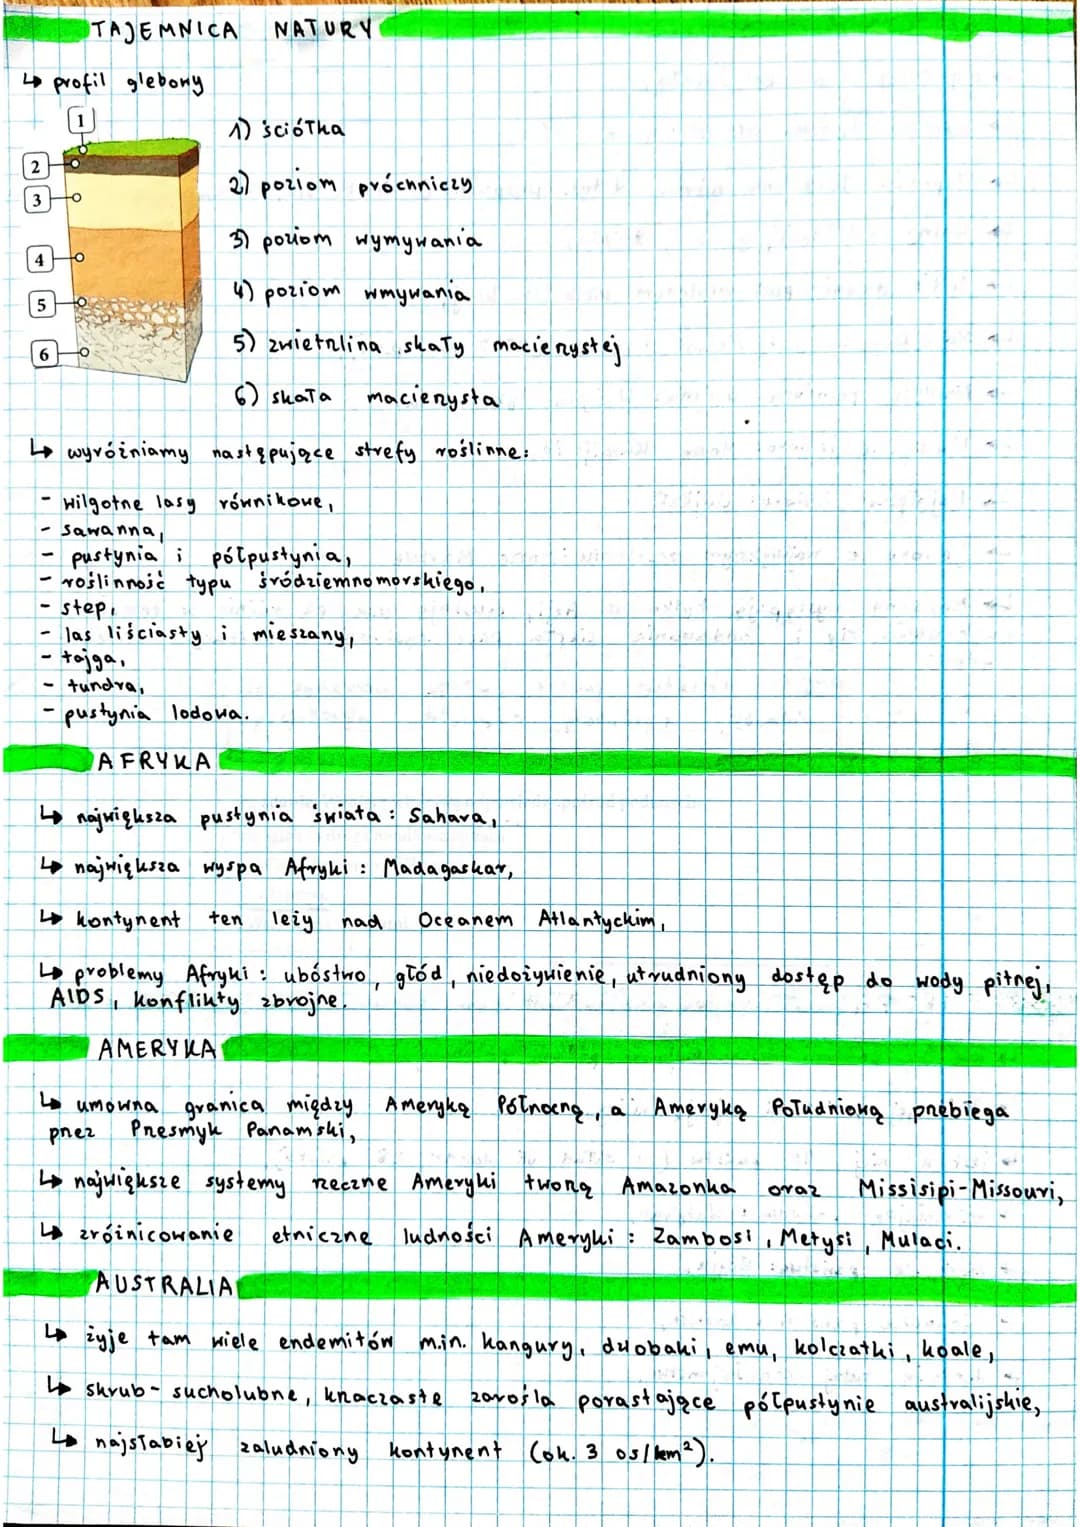 TAJEMNICA NATURY
↳ profil glebowy
1
2
3
4
5
6
1) ściółka
2) poziom próchniczy
3) poziom wymywania
4) poziom wmywania
5) zwietrzlina skały macierzystej
6) skała macierzysta
↳ wyróżniamy następujące strefy roślinne:
- wilgotne lasy równikowe,
- sawanna,
- pustynia i półpustynia,
- roślinność typu śródziemnomorskiego,
- step,
- las liściasty i mieszany,
- tajga,
- tundra,
- pustynia lodowa.
AFRYKA
↳ największa pustynia świata : Sahara,
↳ największa wyspa Afryki : Madagaskar,
↳ kontynent ten leży nad Oceanem Atlantyckim,
↳ problemy Afryki : ubóstwo, głód, niedożywienie, utrudniony dostęp do wody pitnej,
AIDS, konflikty zbrojne.
AMERYKA
↳ umowna granica między Ameryką Północną, a Ameryką Południową przebiega
przez Przesmyk Panamski,
↳ największe systemy rzeczne Ameryki tworzą Amazonka oraz Missisipi-Missouri,
↳ zróżnicowanie etniczne ludności Ameryki : Zambosi, Metysi, Mulaci.
AUSTRALIA
↳ żyje tam wiele endemitów m.in. kangury, dziobaki, emu, kolczatki, koale,
↳ skrub - sucholubne, krzaczaste zarośla porastające półpustynie australijskie,
↳ najsłabiej zaludniony kontynent (ok. 3 os/km²).